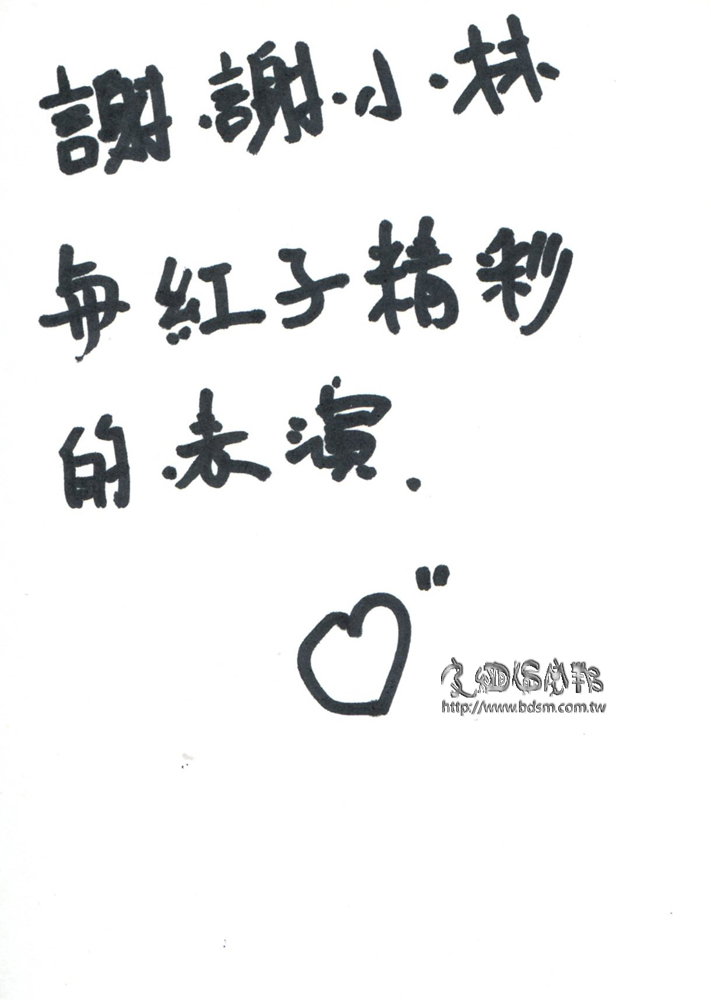 謝謝小林
與紅子精彩
的表演.
http://www.bdsm.com.tw